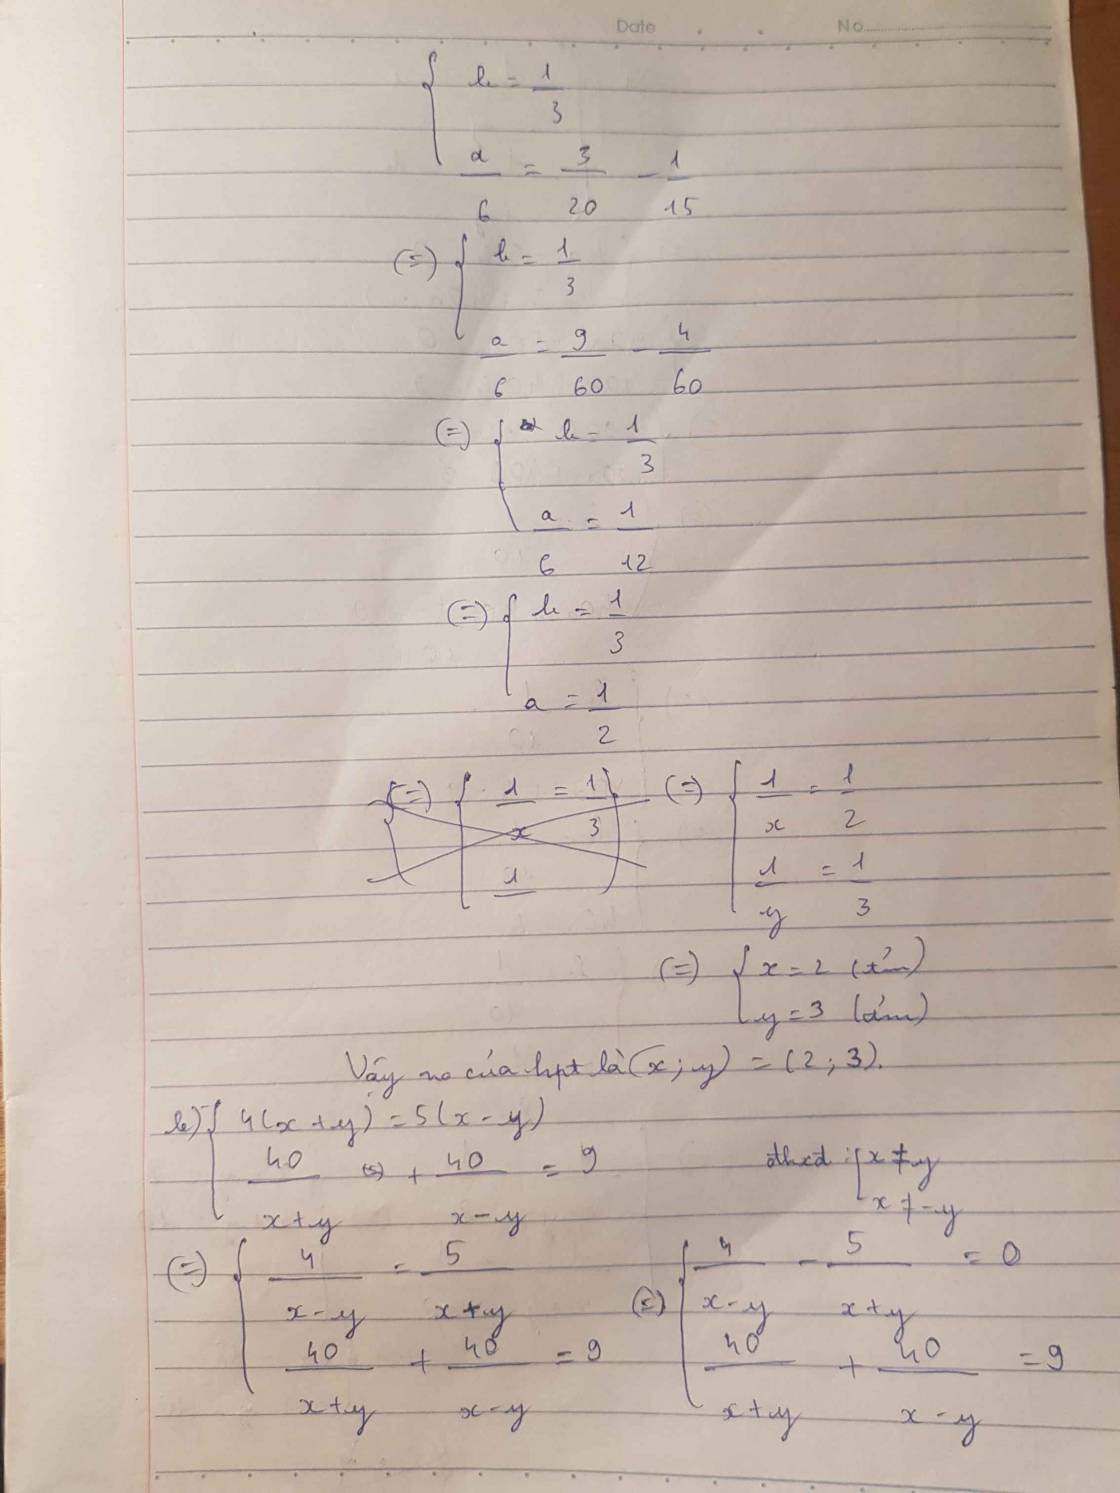 Date No
{ b = 1/3
a/6 = 3/20 - 1/15
(=) { b = 1/3
a/6 = 9/60 - 4/60
(=) { b = 1/3
a/6 = 1/12
(=) { b = 1/3
a = 1/2
(=) { 1/x = 1/3 (=) { 1/x = 1/2
1 1/y = 1/3
(=) { x = 2 (t/m)
y = 3 (t/m)
Vậy no của hpt là (x; y) = (2; 3).
b) { 4(x + y) = 5(x - y)
40/(x+y) + 40/(x-y) = 9 đkxđ : { x ≠ y
x ≠ -y
(=) { 4/(x-y) = 5/(x+y) (=) { 4/(x-y) - 5/(x+y) = 0
40/(x+y) + 40/(x-y) = 9 40/(x+y) + 40/(x-y) = 9